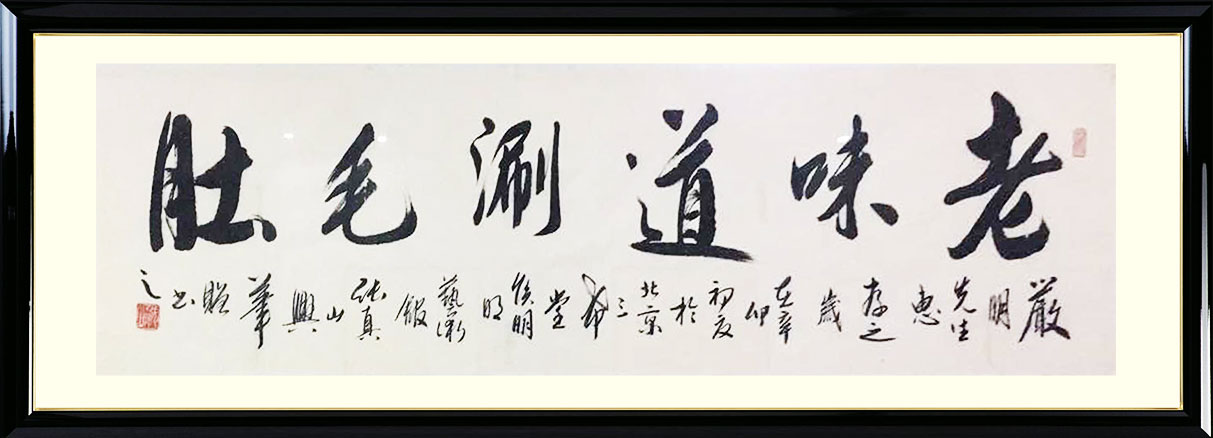 老味道涮毛肚
嚴明先生惠存之歲在辛卯初夏於北京三希堂藝術館山興筆書之